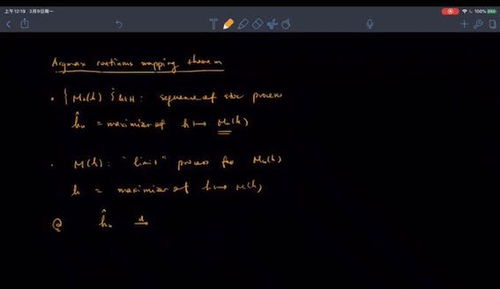 上午12:19 3月9日周一
100%
Argmax continuous mapping theorem
• {Mn(h)}h∈H: sequence of stoc process
ĥn = maximizer of h ↦ Mn(h)
• M(h): "limit" process for Mn(h)
h = maximizer of h ↦ M(h)
Q ĥn d→